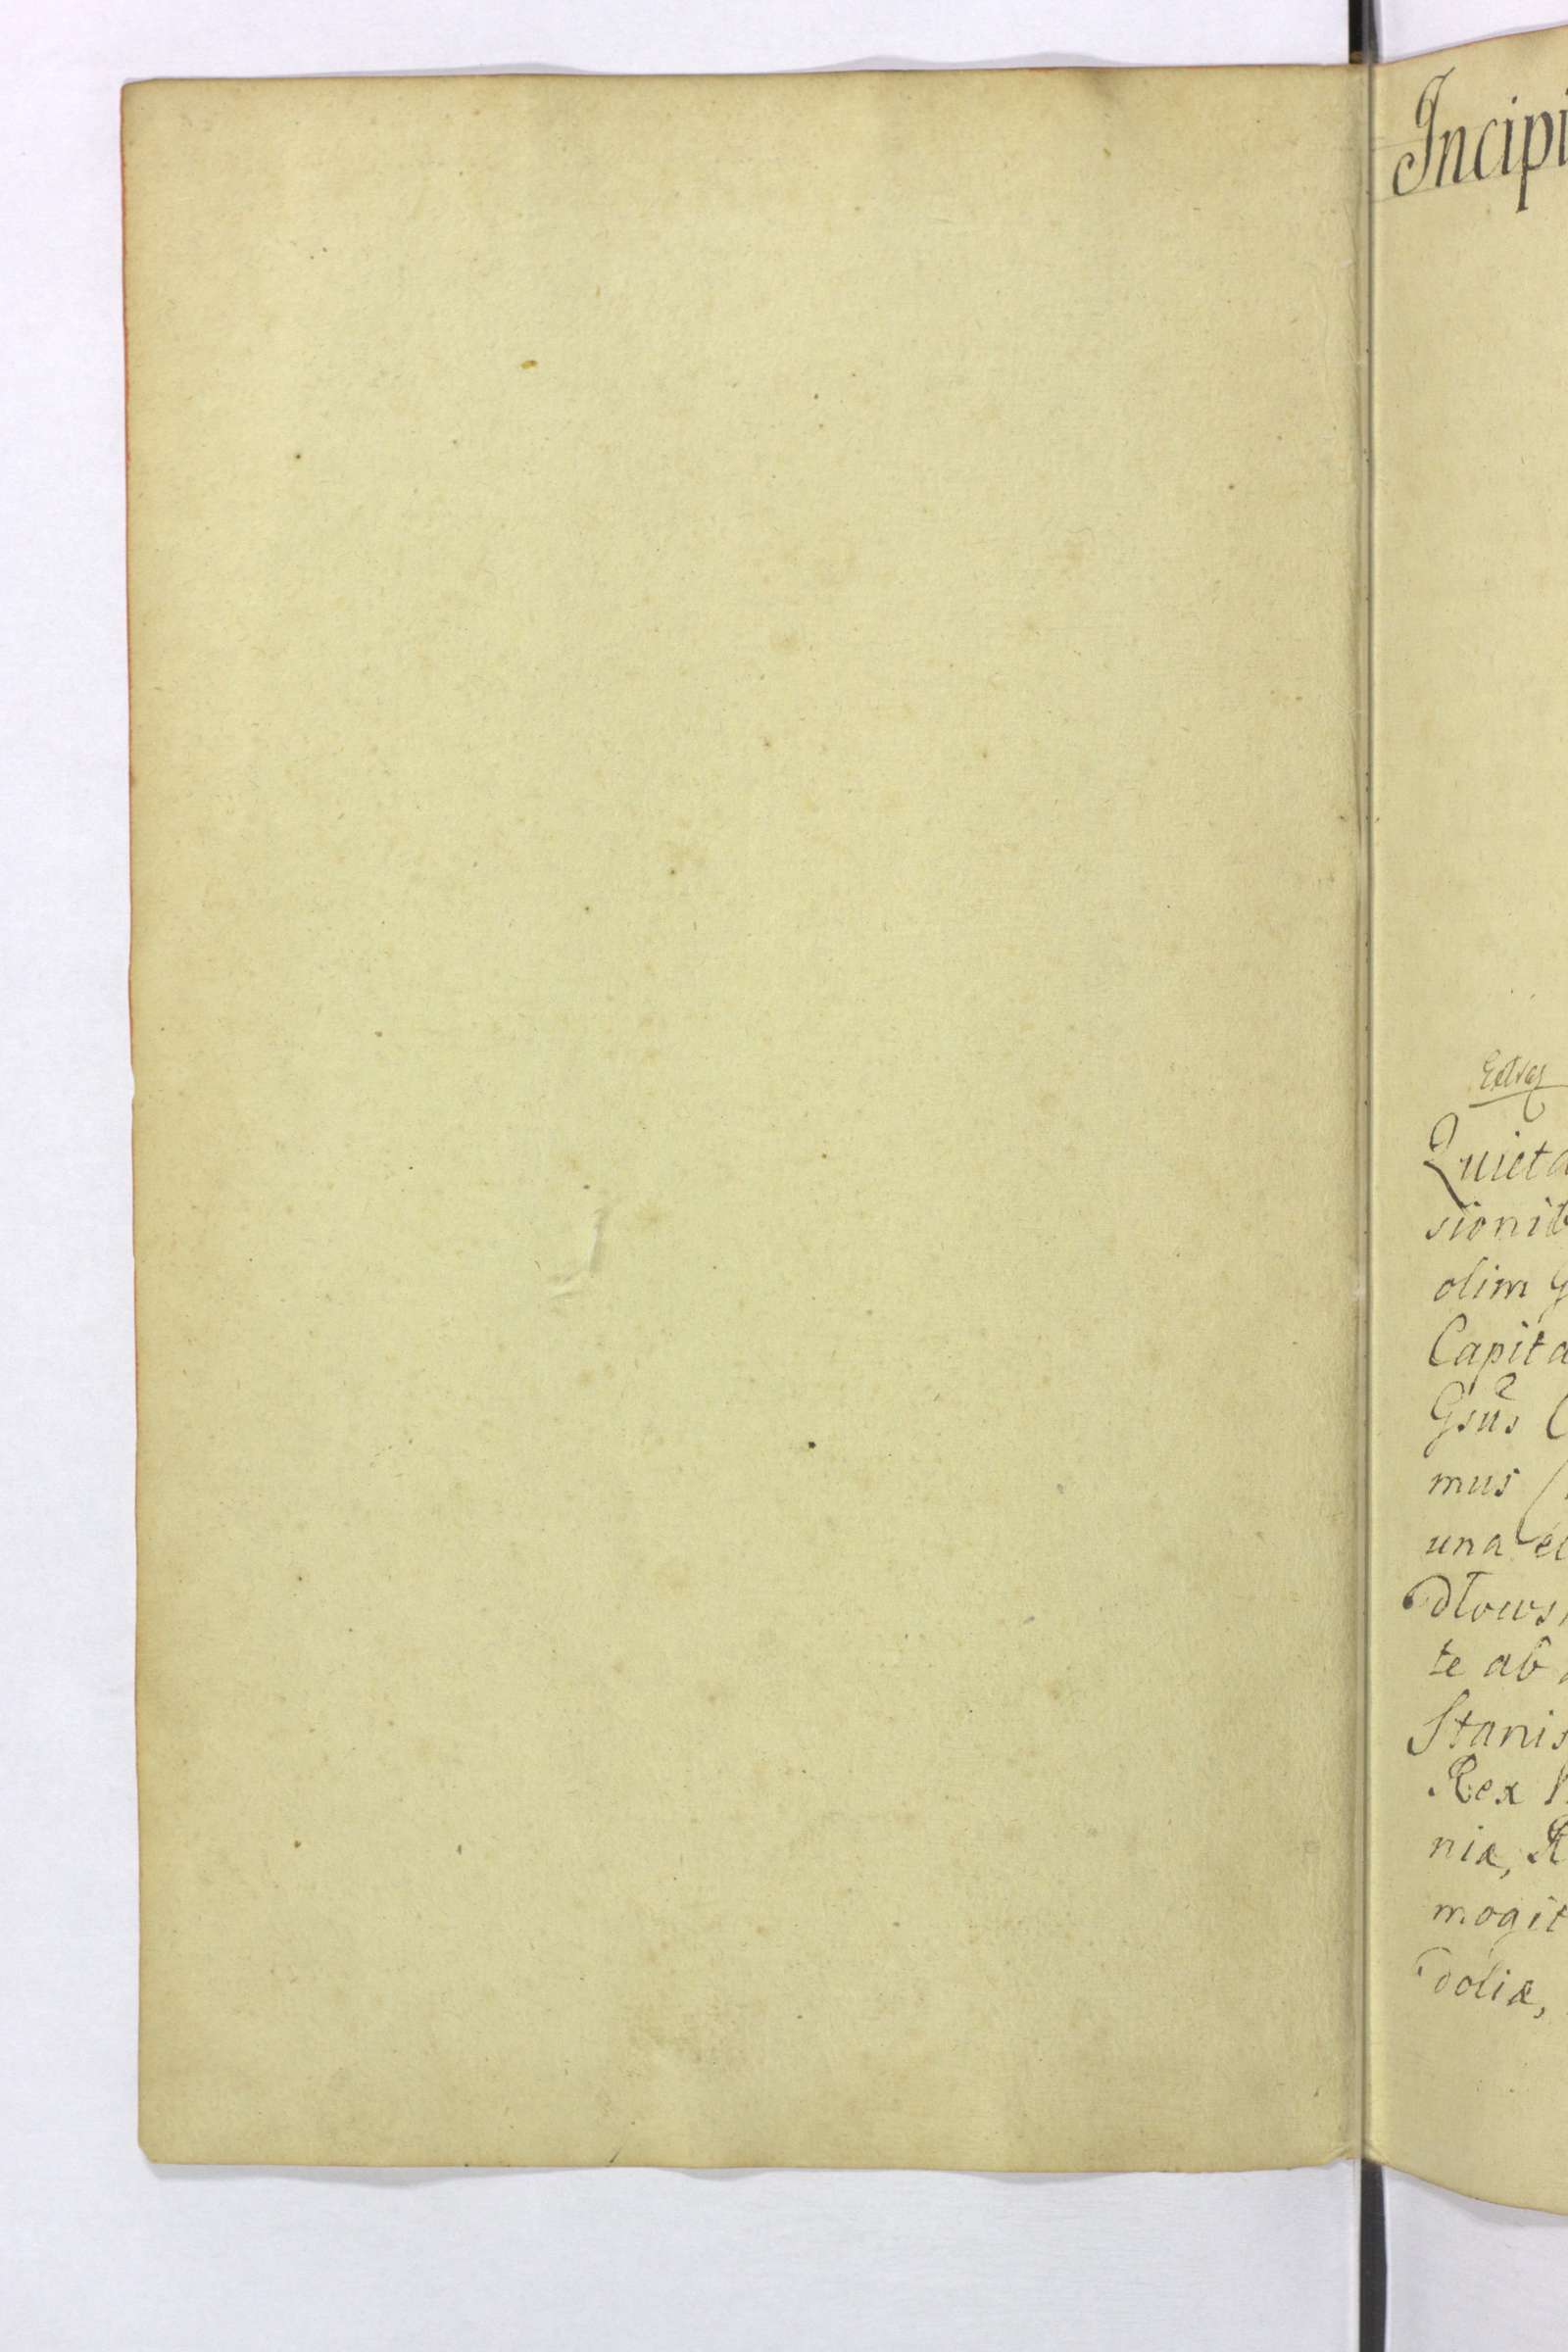 Incipi
Quieta
sionib
olim G
Capita
Gsus
mus
una et
dlows
te ab
Stanis
Rex
niæ, R
mogit
doliæ,